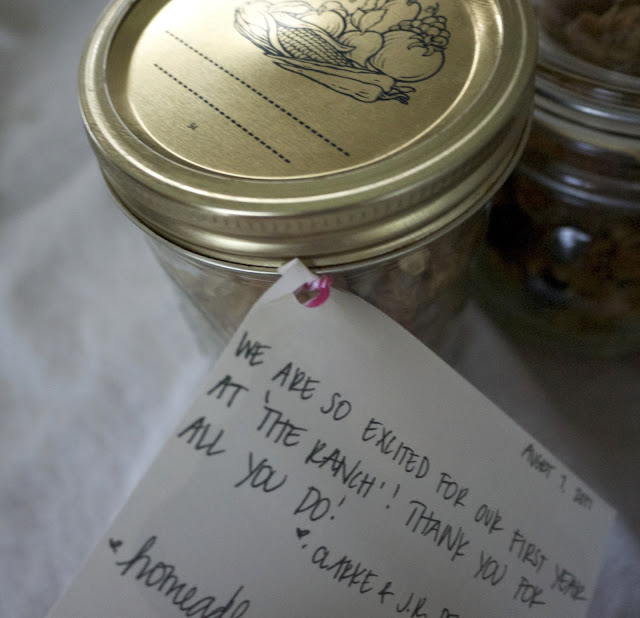 AUGUST 7,
WE ARE SO EXCITED FOR OUR FIRST YEAR
AT 'THE RANCH'! THANK YOU FOR
ALL YOU DO!
♥, CLARKE & J.R.
♥ homeade